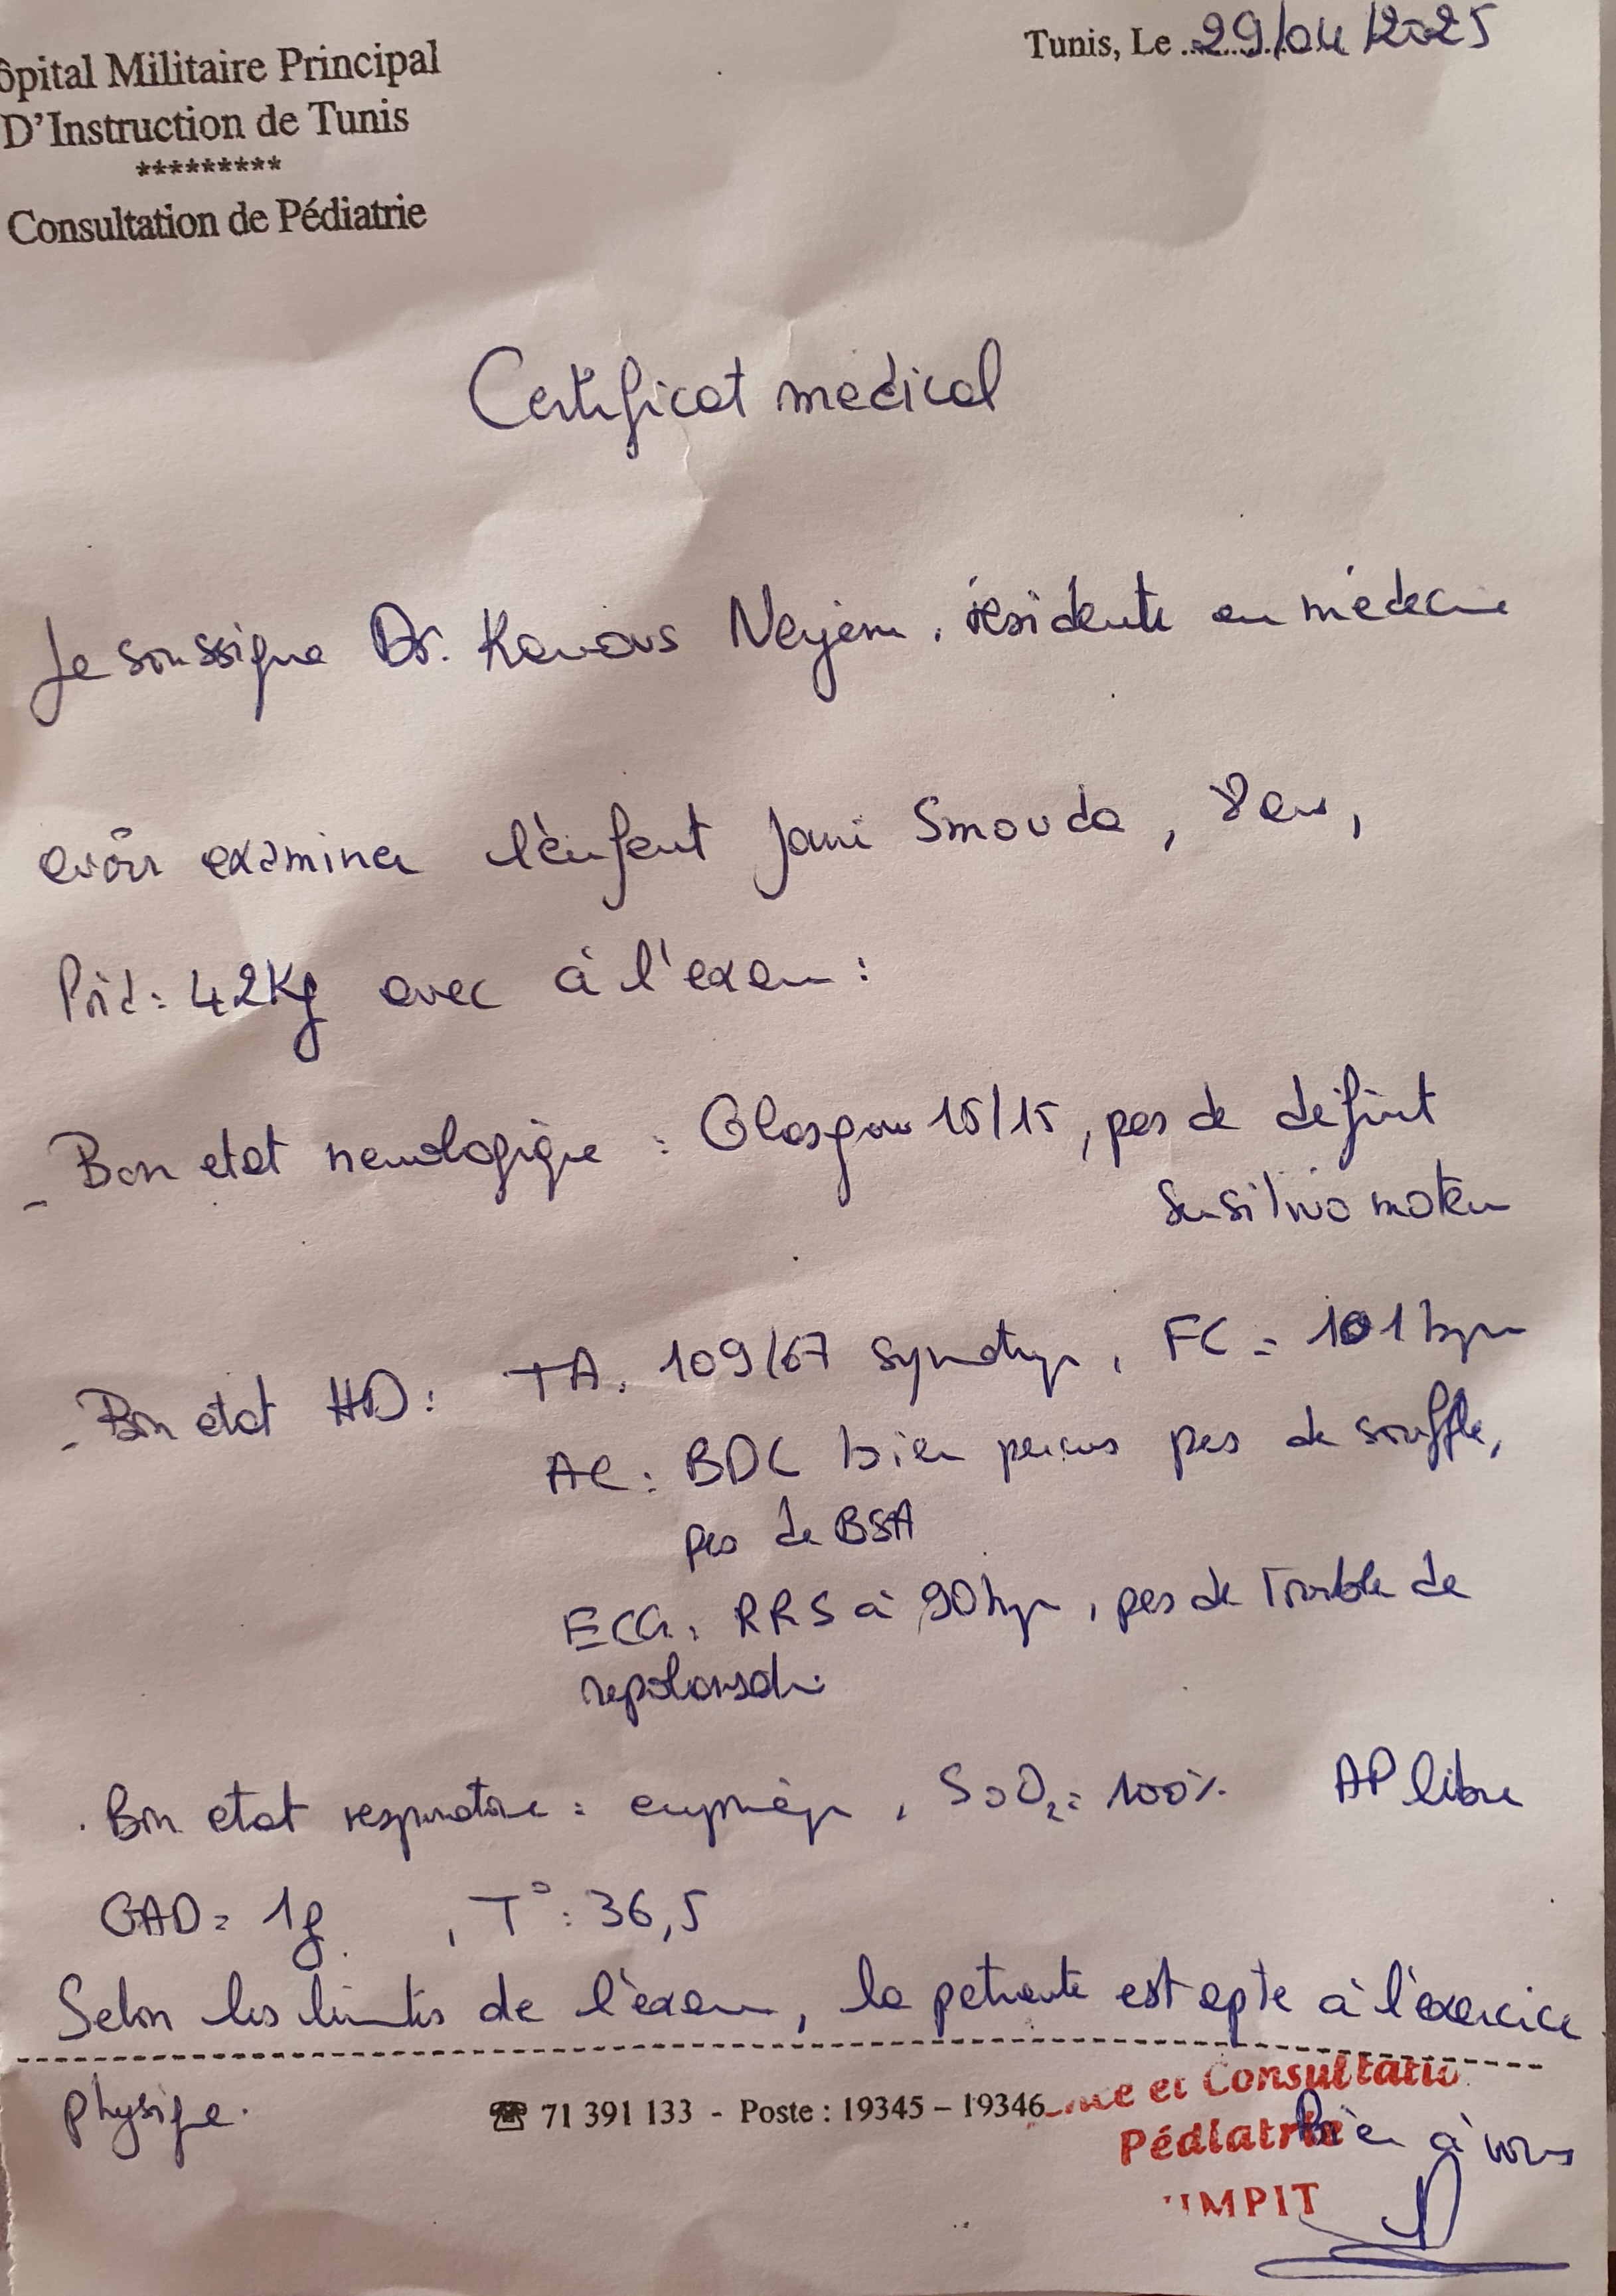 ôpital Militaire Principal
D'Instruction de Tunis
*********
Consultation de Pédiatrie
Tunis, Le 29/04/2025
Certificat medical
Je soussigne Dr. Neyem, résidente en médecine
avoir examiner l'enfant Smouda, 8 ans,
Poid: 42Kg avec à l'examen:
- Bon etat neurologique : Glasgow 15/15, pas de déficit
sensitivo moteur
- Bon etat HD: TA: 109/67 , FC = 101 bpm
AC: BDC bien percus pas de souffle,
pas de BSA
ECG: RRS à 90 bpm, pas de Trouble de
repolarisation
. Bon etat respiratoire : eupnéique, SaO2 = 100% AP libre
GAD = 1g , T°: 36,5
Selon les limites de l'examen, la patiente est apte à l'exercice
physique.
☎ 71 391 133 - Poste : 19345 – 19346
et Consultatio
Pédiatrie
HMPIT
Bien à vous